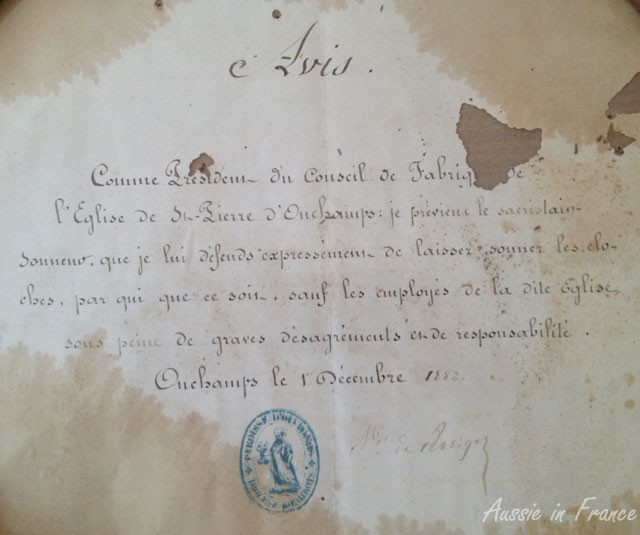 Avis.
Comme Président du Conseil de Fabrique de
l'Eglise de St Pierre d'Ouchamps: je préviens le sacristain-
sonneur, que je lui défends expressément de laisser sonner les clo-
ches, par qui que ce soit, sauf les employés de la dite Eglise,
sous peine de graves désagréments et de responsabilité.
Ouchamps le 1r Décembre 1882.
PAROISSE D'OUCHAMPS
Aussie in France